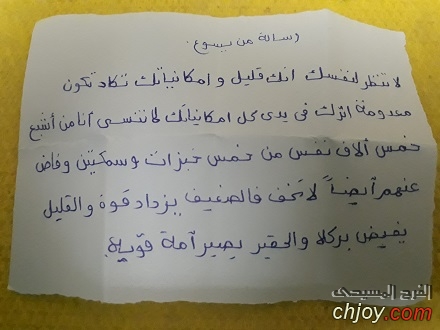 رسالة من يسوع.
لا تنظر لنفسك انك قليل و امكانياتك تكاد تكون
معدومة اترك فى يدى كل امكانياتك لا تنسى أنا من أشبع
خمس ألاف نفس من خمس خبزات و سمكتين و فاض
عنهم أيضاً لا تخف فالضعيف يزداد قوة و القليل
يفيض بركة والحقير يصير أمة قوية.
الفرح المسيحى
chjoy.com